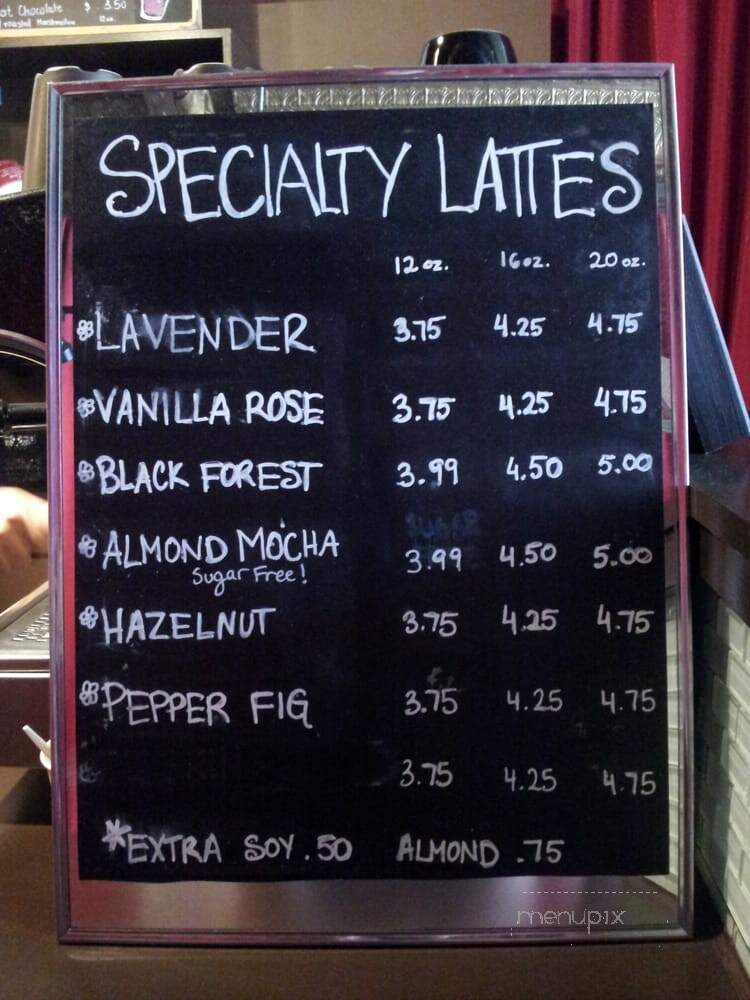 ot Chocolate $ 3.50
roasted Marshmallow 12 oz.
SPECIALTY LATTES
12 oz. 16 oz. 20 oz.
LAVENDER 3.75 4.25 4.75
VANILLA ROSE 3.75 4.25 4.75
BLACK FOREST 3.99 4.50 5.00
ALMOND MOCHA 3.99 4.50 5.00
Sugar Free!
HAZELNUT 3.75 4.25 4.75
PEPPER FIG 3.75 4.25 4.75
3.75 4.25 4.75
*EXTRA SOY .50 ALMOND .75
menupix